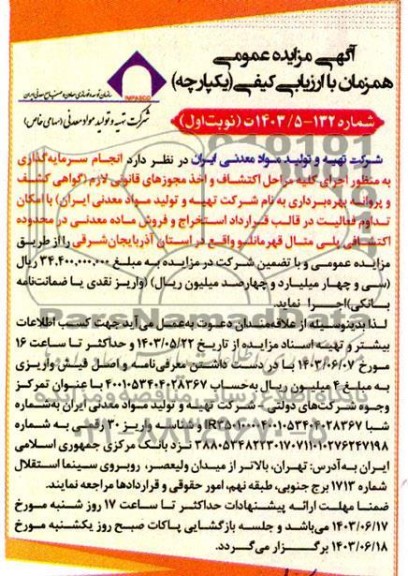 آگهی مزایده عمومی
همزمان با ارزیابی کیفی(یکپارچه)
شرکت تهیه و تولید مواد معدنی(سهامی خاص)
شماره ۱۳۲-۱۴۰۳/۵ت (نوبت اول)
شرکت تهیه و تولید مواد معدنی ایران در نظر دارد انجام سرمایه‌گذاری
به منظور اجرای کلیه مراحل اکتشاف و اخذ مجوزهای قانونی لازم (گواهی کشف
و پروانه بهره‌برداری به نام شرکت تهیه و تولید مواد معدنی ایران) با امکان
تداوم فعالیت در قالب قرارداد استخراج و فروش ماده معدنی در محدوده
اکتشافی پلی متال قهرمانلو واقع در استان آذربایجان‌شرقی را از طریق
مزایده عمومی و با تضمین شرکت در مزایده به مبلغ ۳۴،۴۰۰،۰۰۰،۰۰۰ ریال
(سی و چهار میلیارد و چهارصد میلیون ریال) (واریز نقدی یا ضمانت‌نامه
بانکی)اجرا نماید.
لذا بدینوسیله از علاقه‌مندان دعوت به‌عمل می‌آید جهت کسب اطلاعات
بیشتر و تهیه اسناد مزایده از تاریخ ۱۴۰۳/۰۵/۲۲ و حداکثر تا ساعت ۱۶
مورخ ۱۴۰۳/۰۶/۰۷ با در دست داشتن معرفی‌نامه و اصل فیش واریزی
به مبلغ ۴ میلیون ریال به‌حساب ۴۰۰۱۰۵۳۴۰۴۰۲۸۳۶۷ با عنوان تمرکز
وجوه شرکت‌های دولتی - شرکت تهیه و تولید مواد معدنی ایران به‌شماره
شبا IR۳۵۰۱۰۰۰۰۴۰۰۱۰۵۳۴۰۴۰۲۸۳۶۷ و شناسه واریز ۳۰ رقمی به شماره
نزد بانک مرکزی جمهوری اسلامی
ایران به‌آدرس: تهران، بالاتر از میدان ولیعصر، روبروی سینما استقلال
شماره ۱۷۱۳ برج جنوبی، طبقه نهم، امور حقوقی و قراردادها مراجعه نمایند.
ضمنا مهلت ارائه پیشنهادات حداکثر تا ساعت ۱۷ روز شنبه مورخ
۱۴۰۳/۰۶/۱۷ می‌باشد و جلسه بازگشایی پاکات صبح روز یکشنبه مورخ
۱۴۰۳/۰۶/۱۸ برگزار می‌گردد.